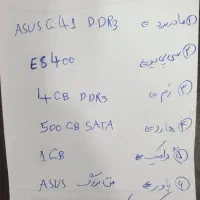 ① مادربرد ⇐ ASUS G41 DDR3
② سی پی یو ⇐ E8400
③ رم ⇐ 4GB DDR3
④ هارد ⇐ 500 GB SATA
⑤ گرافیک ⇐ 1GB
⑥ پاور ⇐ ASUS